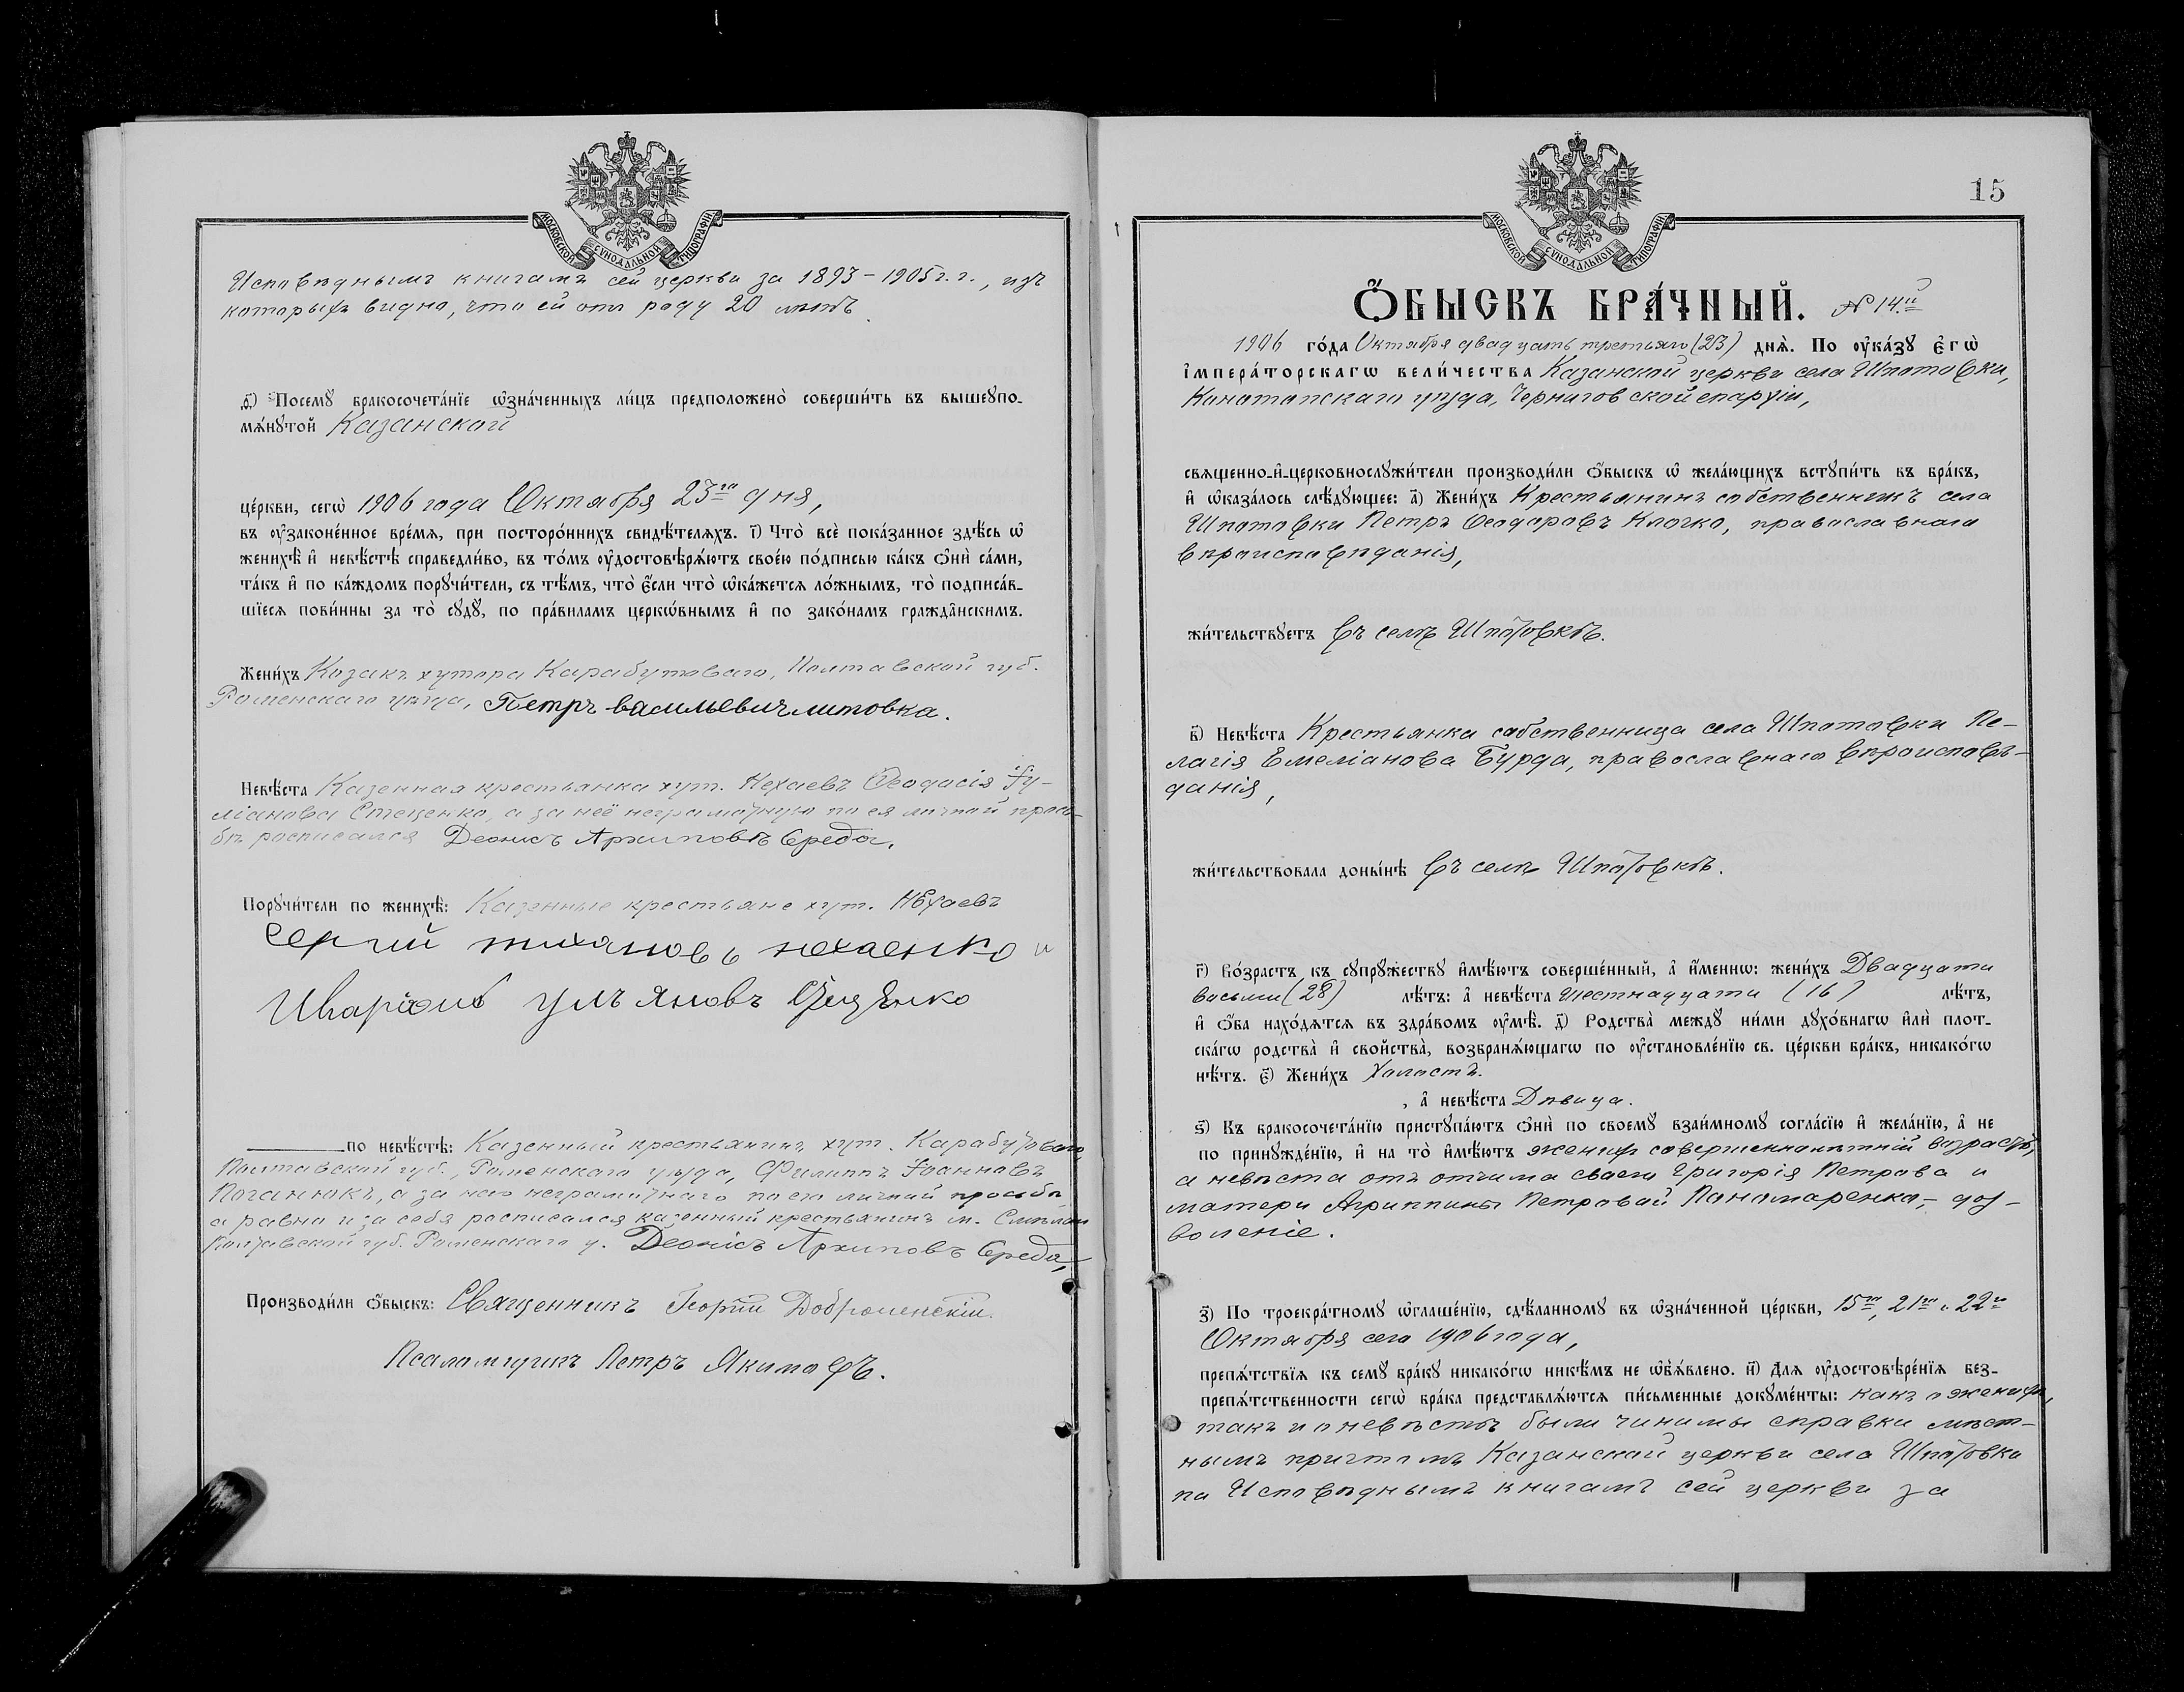 МОСКОВСКОЙ СУНОДАЛЬНОЙ ТИПОГРАФІИ
Исповѣднымъ книгамъ сей церкви за 1893-1905 г.г., изъ
которыхъ видно, что ей отъ роду 20 лѣтъ.
ѳ҃) Посемꙋ̀ бракосочета́нїе ѡ҆зна́ченныхъ ли́цъ предположено̀ соверши́ть въ вышеꙋпо-
мѧ́нꙋтой Казанской
це́ркви, сегѡ̀ 1906 года Октября 23го дня,
въ ᲂу҆законе́нное вре́мѧ, при посторо́ннихъ свидѣ́телѧхъ. і҃) Что̀ всѐ пока́занное здѣ́сь ѡ҆
женихѣ̀ и҆ невѣ́стѣ справедли́во, въ то́мъ ᲂу҆достовѣрѧ́ютъ свое́ю по́дписью ка́къ ѻ҆нѝ са́ми,
та́къ и҆ по ка́ждомъ порꙋчи́тели, съ тѣ́мъ, что̀ є҆́сли что̀ ѡ҆ка́жетсѧ ло́жнымъ, то̀ подписа́в-
шїесѧ пови́нны за то̀ сꙋдꙋ̀, по пра́виламъ церкѡ́внымъ и҆ по зако́намъ гражда́нскимъ.
Жени́хъ Козакъ хутора Карабутоваго, Полтавской губ.
Роменскаго уѣзда, Петръ василъевич литовка.
Невѣ́ста Казенная крестьянка хут. Нехаевъ Ѳеодосія Іу-
ліанова Стеценко, а за неё неграмотную по ея личной прось-
бѣ росписался Деонисъ Архиповъ Середа,
Порꙋчи́тели по женихѣ̀: Казенные крестьяне хут. Нехаевъ
Сергий тихановъ нехаенко и
улъяновъ
по невѣ́стѣ: Казенный крестьянинъ хут. Карабутоваго,
Полтавской губ., Роменскаго уѣзда, Филиппъ Іоанновъ
а за него неграмотнаго по его личной просьбѣ
а равно и за себя росписался казенный крестьянинъ м. Смѣлаго
Полтавской губ. Роменскаго у. Деонисъ Архиповъ Середа,
Производи́ли ѻ҆́быскъ: Священникъ Георгій
Псаломщикъ Петръ Якимовъ.
15
МОСКОВСКОЙ СУНОДАЛЬНОЙ ТИПОГРАФІИ
Ѻ҆́БЫСКЪ БРА́ЧНЫЙ. № 14й
1906 го́да Октября двадцать третьяго (23) днѧ̀. По ᲂу҆ка́зꙋ є҆гѡ̀
і҆мпера́торскагѡ вели́чества Казанской церкви села Шпотовки,
Конотопскаго уѣзда, Черниговской епархіи,
свѧщенно-и҆-церковнослꙋжи́тели производи́ли ѻ҆́быскъ ѡ҆ жела́ющихъ встꙋпи́ть въ бра́къ,
и҆ ѡ҆каза́лось слѣ́дꙋющее: а҃) Жени́хъ Крестьянинъ собственникъ села
Шпотовки Петръ Ѳеодоровъ Клочко, православнаго
вѣроисповѣданія,
жи́тельствꙋетъ въ селѣ Шпотовкѣ.
в҃) Невѣ́ста Крестьянка собственница села Шпотовки Пе-
лагія Емеліанова Бурда, православнаго вѣроисповѣ-
данія,
жи́тельствовала доны́нѣ въ селѣ Шпотовкѣ.
г҃) Во́зрастъ къ сꙋпрꙋ́жествꙋ и҆мѣ́ютъ соверше́нный, а҆ и҆́меннѡ: жени́хъ Двадцати
восьми (28) лѣ́тъ: а҆ невѣ́ста шестнадцати (16) лѣ́тъ,
и҆ ѻ҆́ба нахо́дѧтсѧ въ здра́вомъ ᲂу҆мѣ̀. д҃) Родства̀ междꙋ̀ ни́ми дꙋхо́внагѡ и҆лѝ плот-
ска́гѡ родства̀ и҆ свойства̀, возбранѧ́ющагѡ по ᲂу҆становле́нїю св. це́ркви бра́къ, никако́гѡ
нѣ́тъ. є҃) Жени́хъ Холостъ.
, а҆ невѣ́ста Дѣвица.
ѕ҃) Къ бракосочета́нїю пристꙋпа́ютъ ѻ҆нѝ по своемꙋ̀ взаи́мномꙋ согла́сїю и҆ жела́нїю, а҆ не
по принꙋжде́нїю, и҆ на то̀ и҆мѣ́ютъ женихъ совершеннолѣтній возрастъ,
а невѣста отъ отчима своего Григорія Петрова и
матери Агриппины Петровой Пономаренко,- доз-
воленіе.
з҃) По троекра́тномꙋ ѡ҆глаше́нїю, сдѣ́ланномꙋ въ ѡ҆зна́ченной це́ркви, 15го, 21го и 22го
Октября сего 1906 года,
препѧ́тствїѧ къ семꙋ̀ бра́кꙋ никако́гѡ никѣ́мъ не ѡ҆б̾ѧ́влено. и҃) Длѧ ᲂу҆достовѣре́нїѧ без-
препѧ́тственности сегѡ̀ бра́ка представлѧ́ютсѧ пи́сьменные докꙋме́нты: какъ о женихѣ,
такъ и о невѣстѣ были чинимы справки мѣст-
нымъ причтомъ Казанской церкви села Шпотовки
по Исповѣднымъ книгамъ сей церкви за